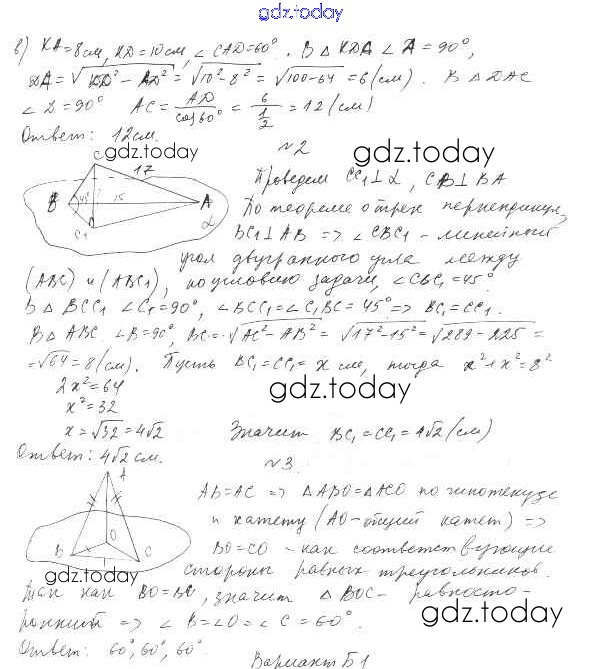 gdz.today
в) KA=8см, KD=10см, ∠CAD=60°. В ΔKDA ∠A=90°,
DA=√KD²-AD²=√10²-8²=√100-64=6(см). В ΔDAC
∠D=90° AC=AD/cos60°=6/(1/2)=12(см)
Ответ: 12см.
gdz.today
gdz.today
№2
C 17
B 45° 15 A
C₁ α
Проведем CC₁⊥α, CB⊥BA
По теореме о трех перпендикул.
BC₁⊥AB => ∠CBC₁ - линейный
угол двугранного угла между
(ABC) и (ABC₁), по условию задачи, ∠CBC₁=45°
В ΔBCC₁ ∠C₁=90°, ∠BCC₁=∠C₁BC=45° => BC₁=CC₁.
В ΔABC ∠B=90°, BC=√AC²-AB²=√17²-15²=√289-225=
=√64=8(см). Пусть BC₁=CC₁=x см, тогда x²+x²=8²
2x²=64
gdz.today
x²=32
x=√32=4√2 Значит BC₁=CC₁=4√2(см)
Ответ: 4√2 см.
№3.
A
O
B C
AB=AC => ΔABO=ΔACO по гипотенузе
и катету (AO-общий катет) =>
BO=CO - как соответствующие
стороны равных треугольников.
gdz.today
Так как BO=BC, значит ΔBOC - равносто-
gdz.today
ронний => ∠B=∠O=∠C=60°.
Ответ: 60°, 60°, 60°.
Вариант Б1